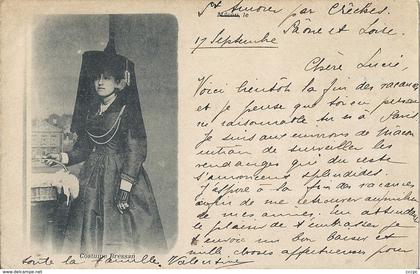 St Amour par Crèches.
Saône et Loire.
Mâcon, le
17 Septembre
Chère Lucie,
Voici bientôt la fin des vacances
et je pense que toi en personne
raisonnable tu es à Paris
Je suis aux environs de Macon
de surveiller les
vendanges qui du reste
s'annoncent splendides.
J'espère à la fin des vacances
de me retrouver
de mes amies. En attendant
le plaisir de t'embrasser je
t'envoie un bon baiser et
mille choses affectueuses pour
Costume Bressan
toute la famille. Valentine